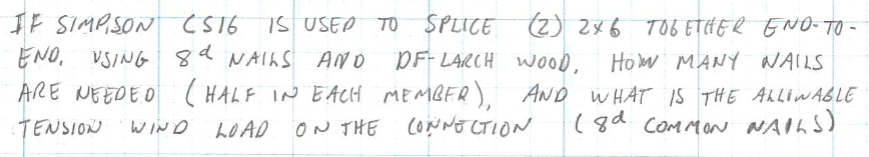 IF SIMPSON CS16 IS USED TO SPLICE (2) 2x6 TOGETHER END-TO-
END, USING 8d NAILS AND DF-LARCH WOOD, HOW MANY NAILS
ARE NEEDED (HALF IN EACH MEMBER), AND WHAT IS THE ALLOWABLE
TENSION WIND LOAD ON THE CONNECTION (8d COMMON NAILS)